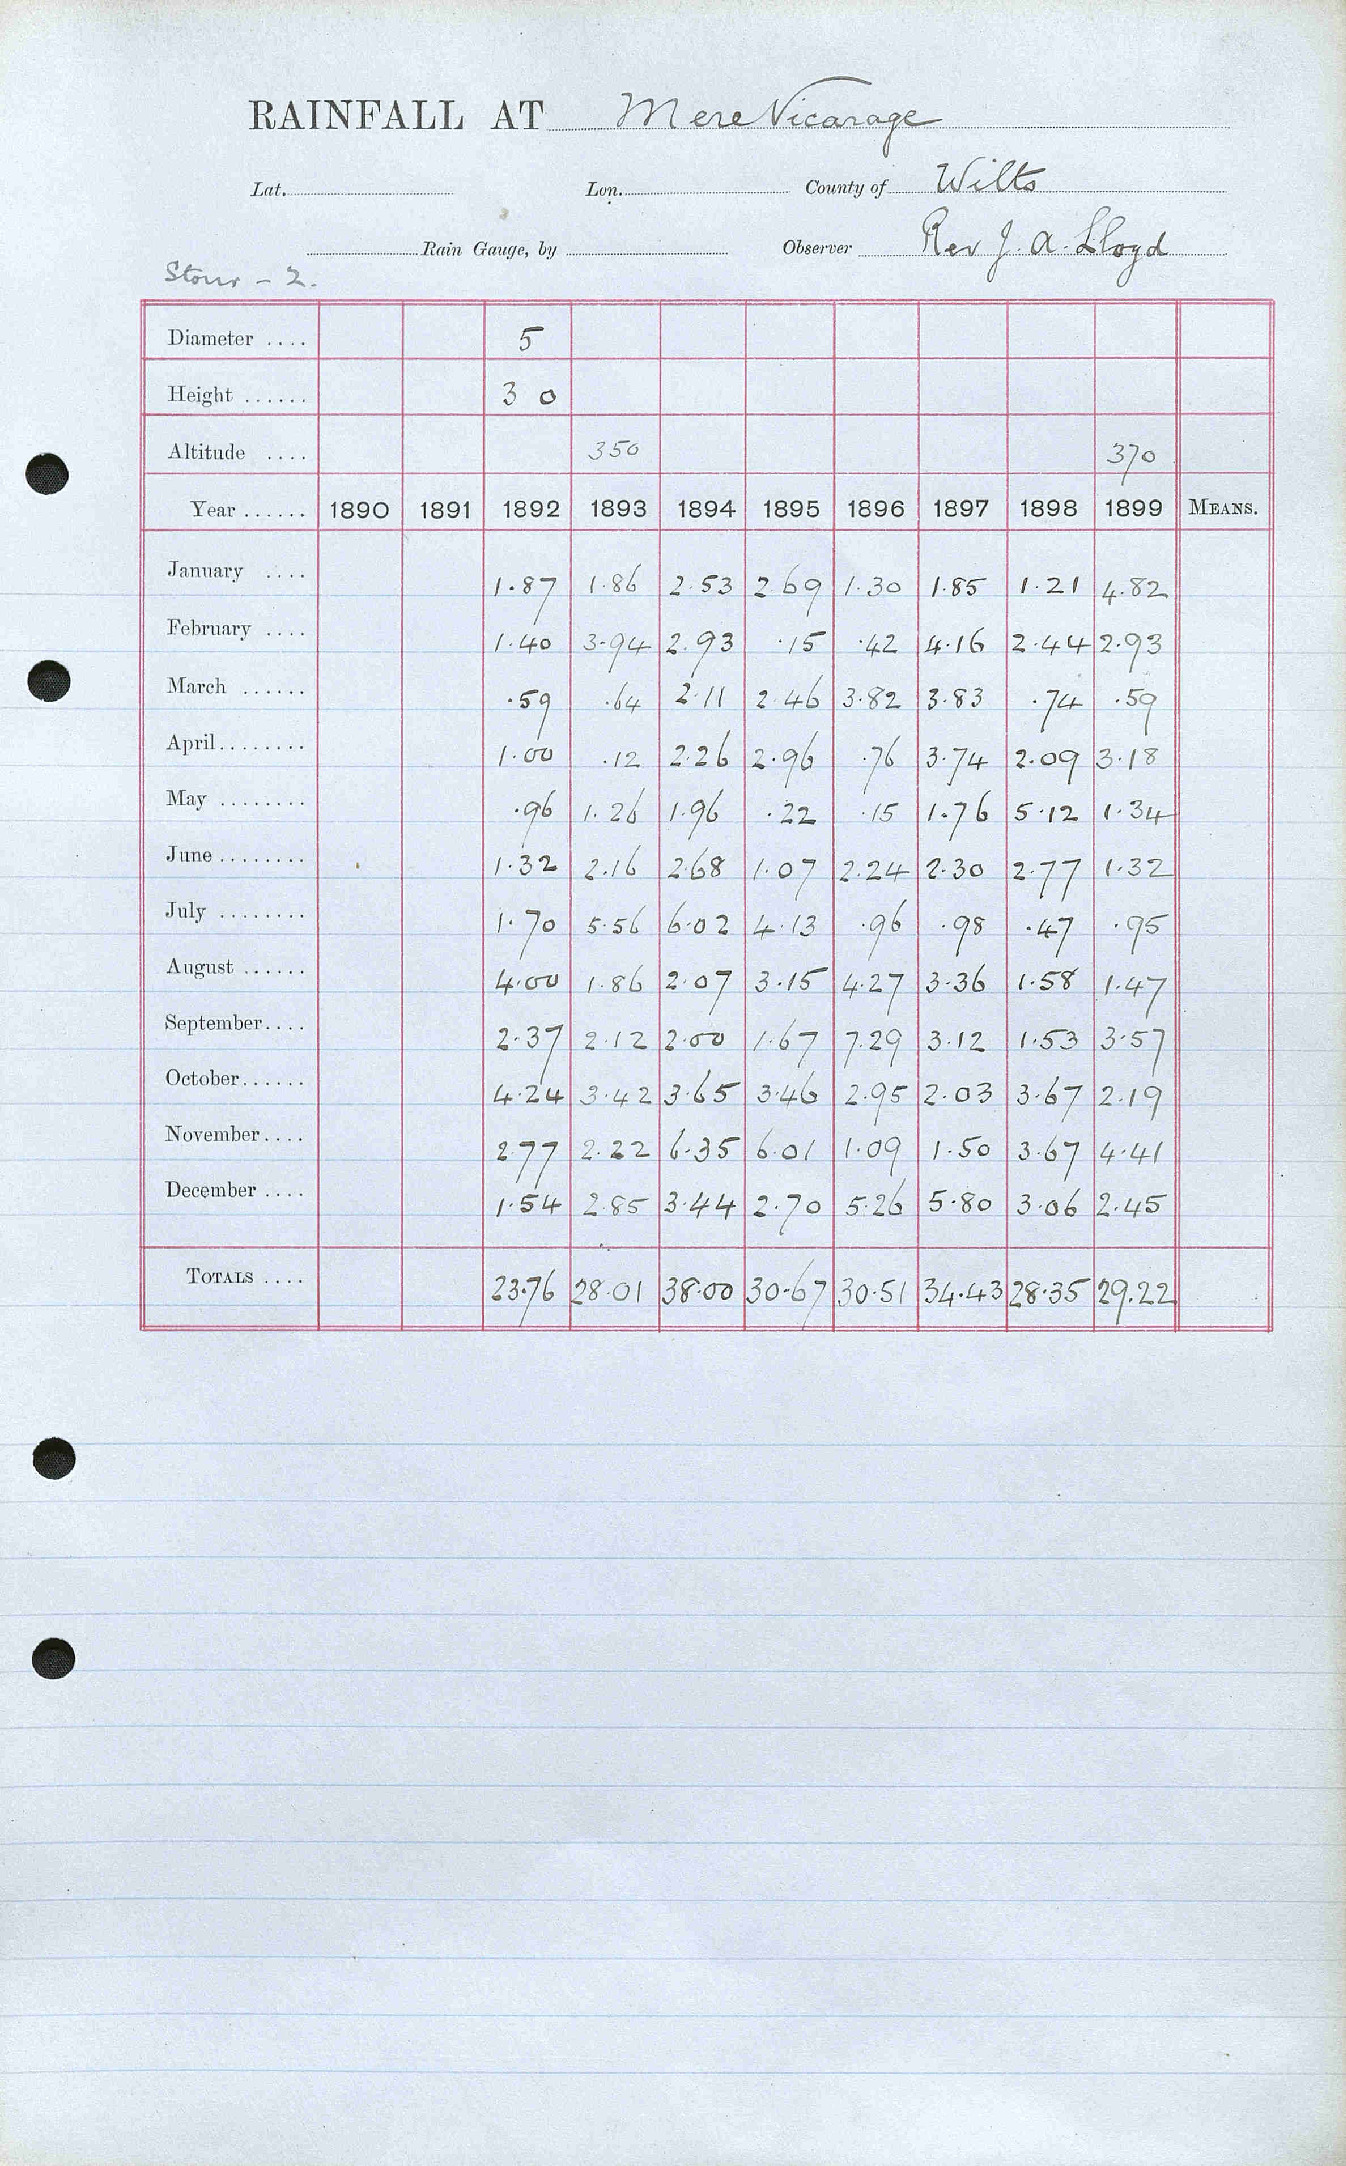 RAINFALL AT Mere Vicarage
Lat. Lon. County of Wilts
Rain Gauge, by Observer Rev J. A. Lloyd
Stour - 2.
Diameter .... 5
Height ...... 3 0
Altitude .... 350 370
Year ...... 1890 1891 1892 1893 1894 1895 1896 1897 1898 1899 MEANS.
January .... 1.87 1.86 2.53 2.69 1.30 1.85 1.21 4.82
February .... 1.40 3.94 2.93 .15 .42 4.16 2.44 2.93
March ...... .59 .64 2.11 2.46 3.82 3.83 .74 .59
April........ 1.00 .12 2.26 2.96 .76 3.74 2.09 3.18
May ........ .96 1.26 1.96 .22 .15 1.76 5.12 1.34
June ........ 1.32 2.16 2.68 1.07 2.24 2.30 2.77 1.32
July ........ 1.70 5.56 6.02 4.13 .96 .98 .47 .95
August ...... 4.00 1.86 2.07 3.15 4.27 3.36 1.58 1.47
September.... 2.37 2.12 2.00 1.67 7.29 3.12 1.53 3.57
October...... 4.24 3.42 3.65 3.46 2.95 2.03 3.67 2.19
November.... 2.77 2.22 6.35 6.01 1.09 1.50 3.67 4.41
December .... 1.54 2.85 3.44 2.70 5.26 5.80 3.06 2.45
TOTALS .... 23.76 28.01 38.00 30.67 30.51 34.43 28.35 29.22